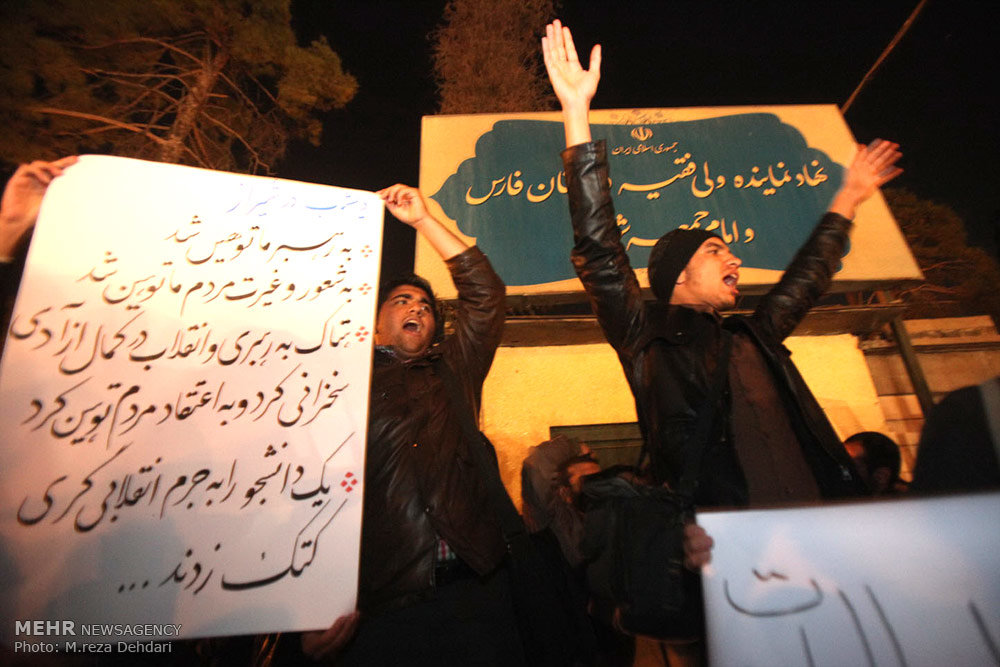 دیشب در شیراز
به رهبر ما توهین شد
به شعور و غیرت مردم ما توهین شد
هتاک به رهبری و انقلاب در کمال آزادی
سخنرانی کرد و به اعتقاد مردم توهین کرد
یک دانشجو را به جرم انقلابی گری
کتک زدند ...
جمهوری اسلامی ایران
نهاد نماینده ولی فقیه در استان فارس
و امام جمعه
MEHR NEWSAGENCY
Photo: M.reza Dehdari